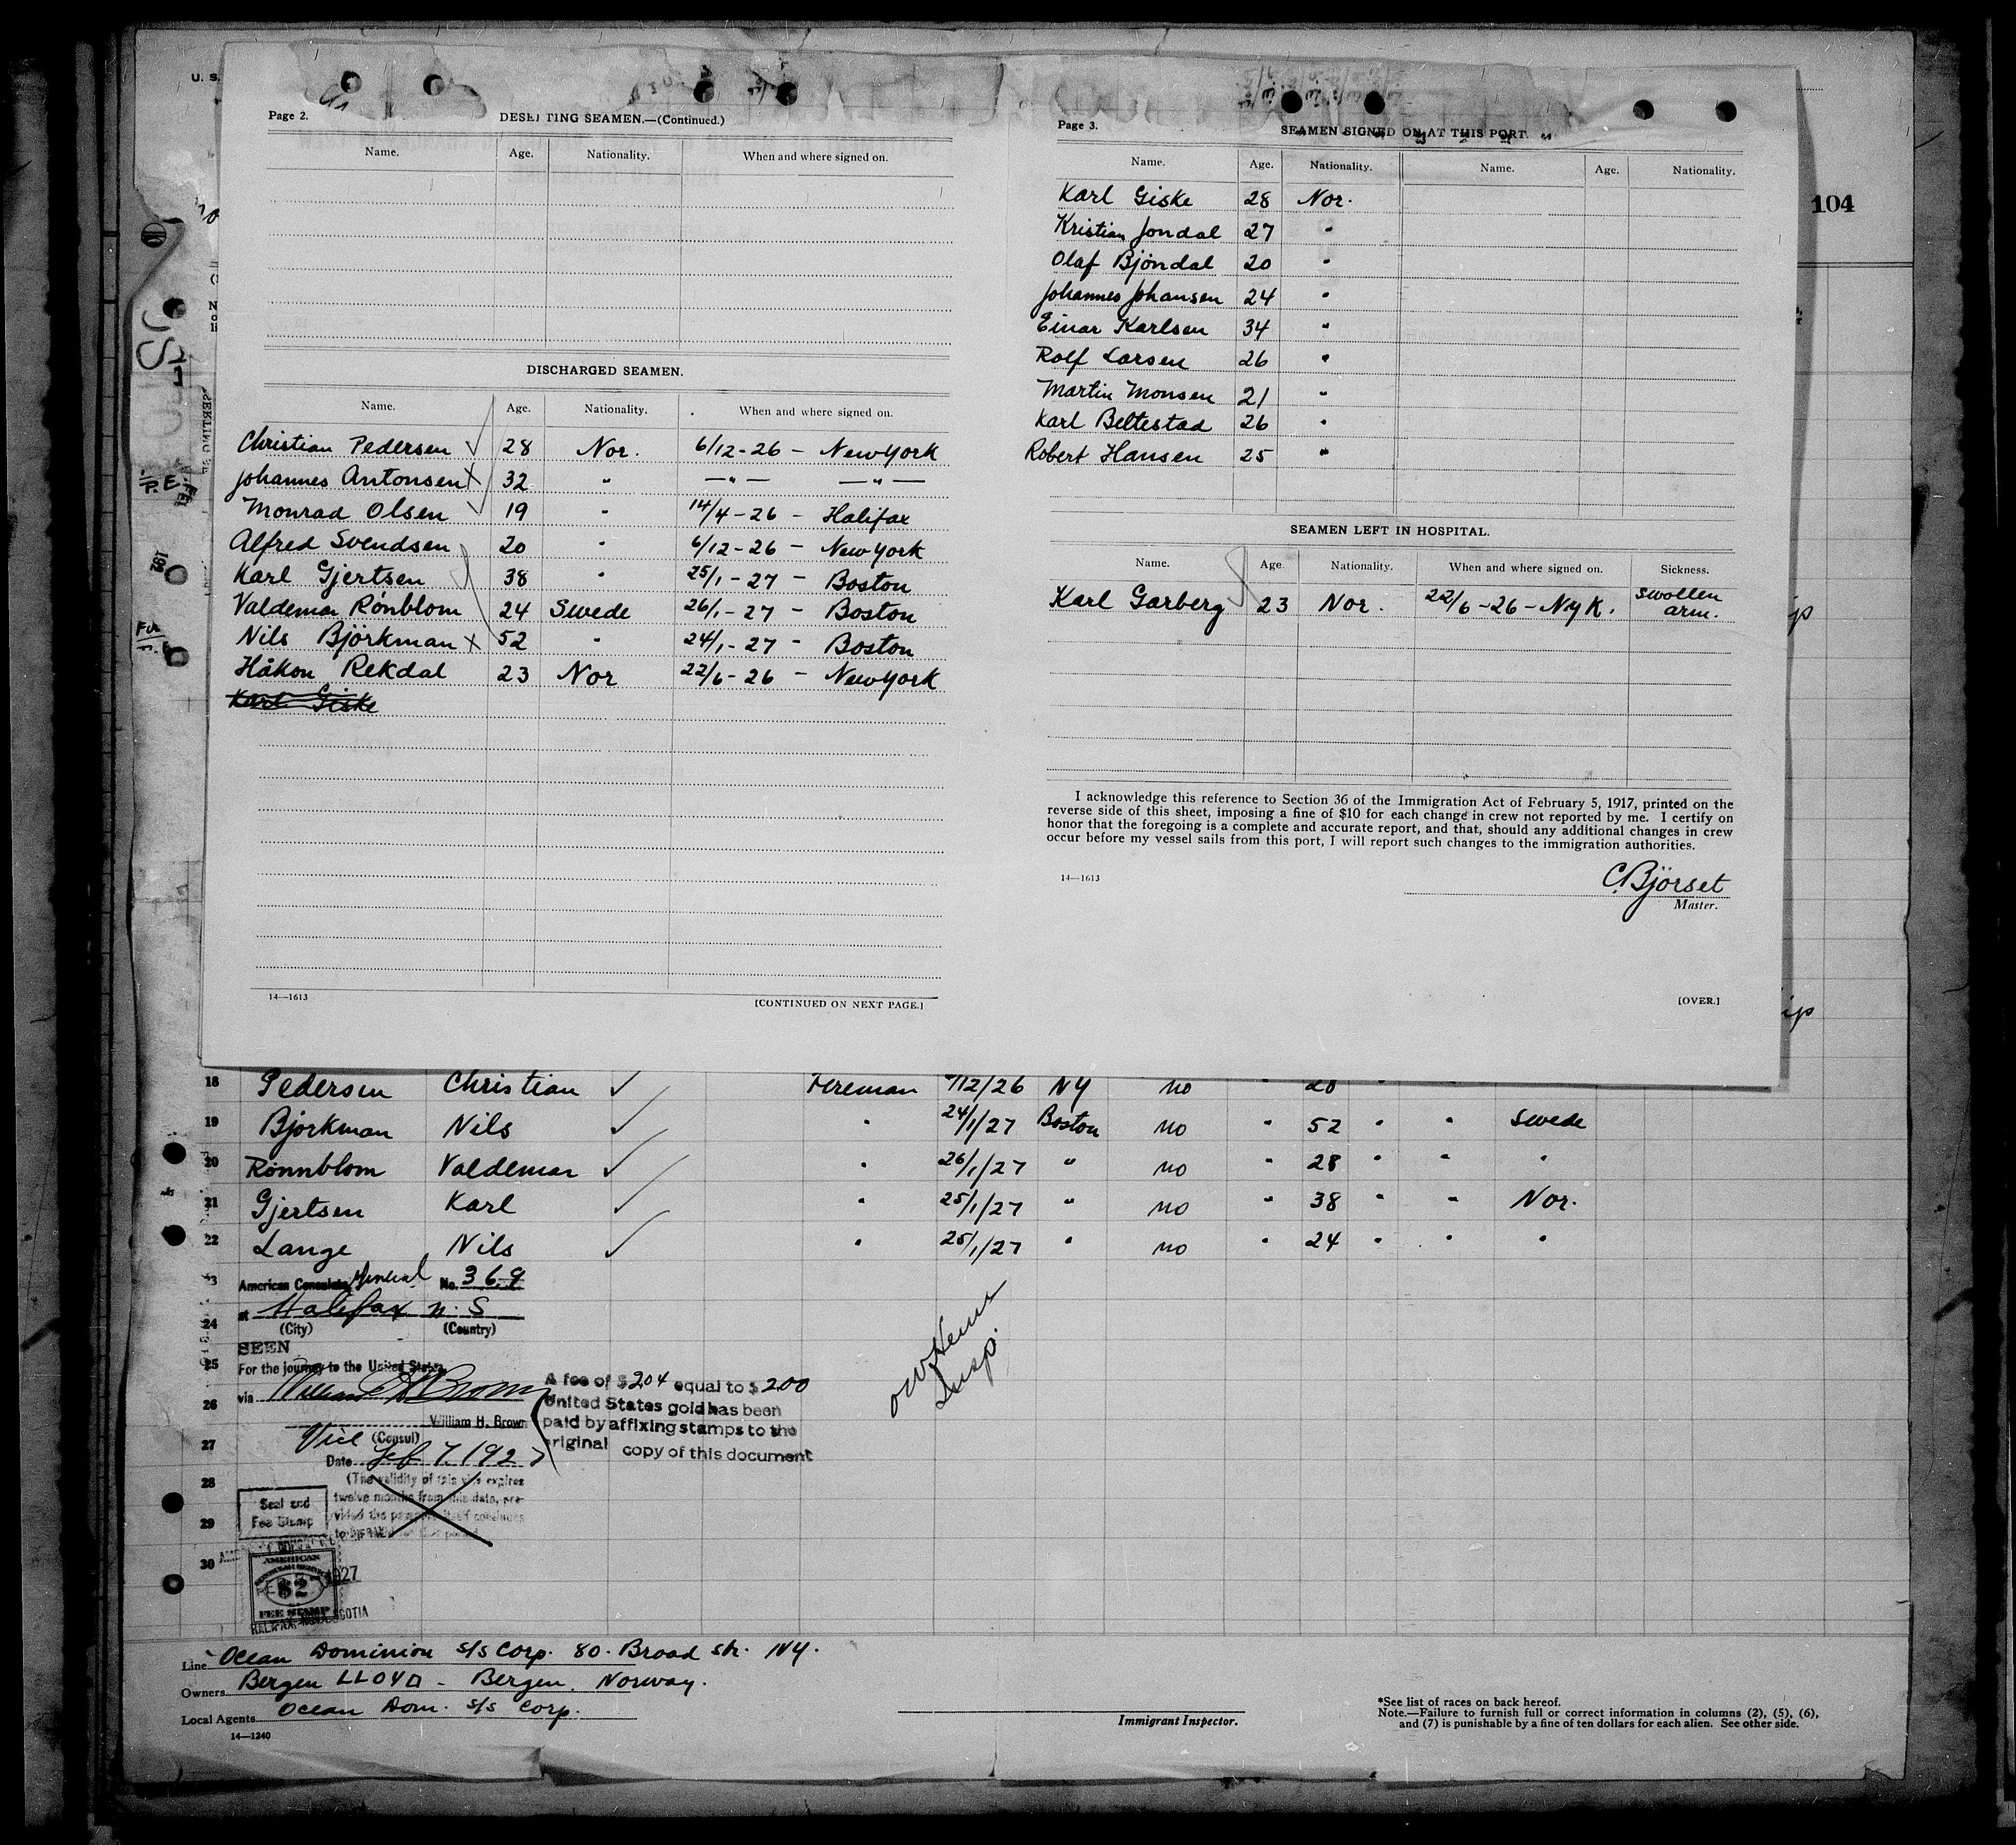 U. S.
Page 2.
DESERTING SEAMEN.—(Continued.)
Name. Age. Nationality. When and where signed on.
DISCHARGED SEAMEN.
Name. Age. Nationality. When and where signed on.
Christian Pedersen ✓ 28 Nor. 6/12-26 - New York
Johannes Antonsen X 32 " —"— —"—
Monrad Olsen ✓ 19 " 14/4-26 - Halifax
Alfred Svendsen 20 " 6/12-26 - New York
Karl Gjertsen ✓ 38 " 25/1-27 - Boston
Valdemar Rönblom 24 Swede 26/1-27 - Boston
Nils Björkman X 52 " 24/1-27 - Boston
Håkon Rekdal 23 Nor 22/6-26 - New York
Karl Giske
14—1613
[CONTINUED ON NEXT PAGE.]
Page 3.
SEAMEN SIGNED ON AT THIS PORT.
Name. Age. Nationality. Name. Age. Nationality.
Karl Giske 28 Nor.
Kristian Jondal 27 "
Olaf Bjöndal 20 "
Johannes Johansen 24 "
Einar Karlsen 34 "
Rolf Larsen 26 "
Martin Monsen 21 "
Karl Beltestad 26 "
Robert Hansen 25 "
SEAMEN LEFT IN HOSPITAL.
Name. Age. Nationality. When and where signed on. Sickness.
Karl Garberg ✓ 23 Nor. 22/6-26-NyK. swollen arm.
I acknowledge this reference to Section 36 of the Immigration Act of February 5, 1917, printed on the
reverse side of this sheet, imposing a fine of $10 for each change in crew not reported by me. I certify on
honor that the foregoing is a complete and accurate report, and that, should any additional changes in crew
occur before my vessel sails from this port, I will report such changes to the immigration authorities.
14—1613
C. Björset
Master.
[OVER.]
104
18 Pedersen Christian ✓ Fireman /12/26 NY no " 28
19 Bjorkman Nils ✓ " 24/1/27 Boston no " 52 " " Swede
20 Rönnblom Valdemar ✓ " 26/1/27 " no " 28 " " "
21 Gjertsen Karl ✓ " 25/1/27 " no " 38 " " Nor.
22 Lange Nils ✓ " 25/1/27 " no " 24 " " "
American Consulate General No. 369
24
at Halifax N.S
(City) (Country)
SEEN
25
For the journey to the United States
26
via William H Brown
William H. Brown
27
Vice (Consul)
Date Feb 7, 1927
28
(The validity of this visa expires
twelve months from this date, pro-
vided the passport itself continues
to be valid for that period
29
Seal and
Fee Stamp
A fee of $2.04 equal to $2.00
United States gold has been
paid by affixing stamps to the
original copy of this document
Insp.
30
AMERICAN
CONSULAR SERVICE
$2
FEE STAMP
1927
HALIFAX, NOVA SCOTIA
Line Ocean Dominion S/S Corp. 80. Broad Str. NY.
Owners Bergen LLOYD - Bergen, Norway.
Local Agents Ocean Dom. S/S Corp.
14—1240
Immigrant Inspector.
*See list of races on back hereof.
Note.—Failure to furnish full or correct information in columns (2), (5), (6),
and (7) is punishable by a fine of ten dollars for each alien. See other side.